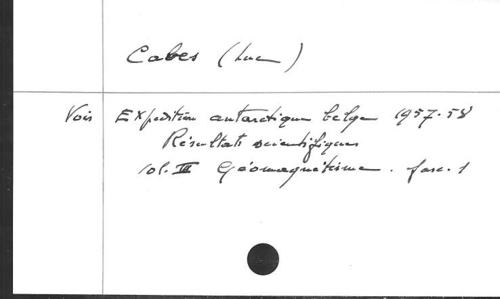 Cabes (Luc)
Voir Expédition antarctique belge 1957-58
Résultats scientifiques
vol. III Géomagnétisme. fasc. 1